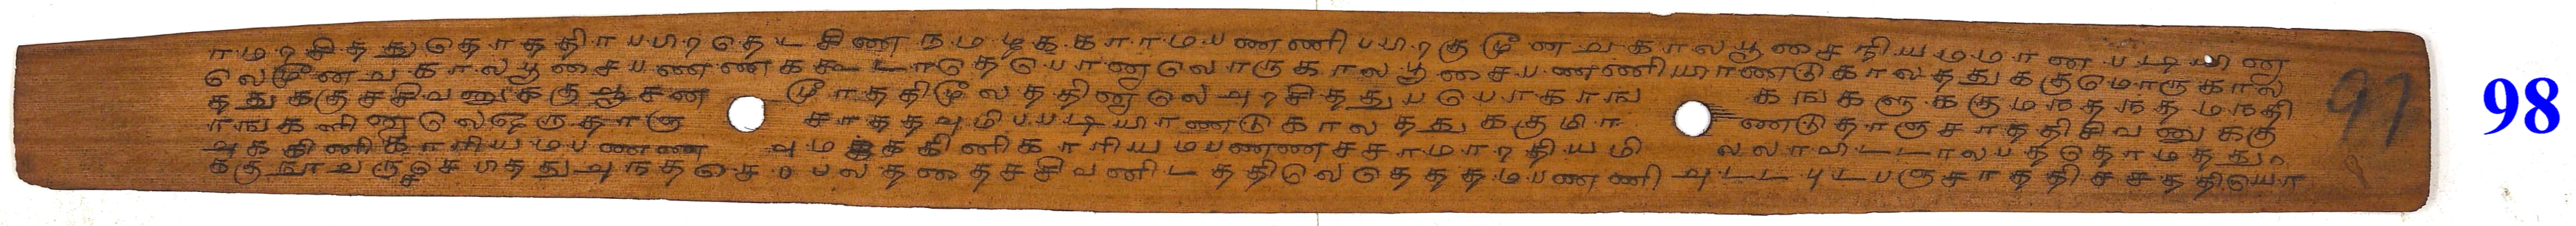 ரமரசித்துதொத்திரபபிரதெடசிணநமழககாரமபணணிபபிரகுமூனவகாலபூசைநியமமானபடியின
லெமூனவகாலபூசைபணணககூடாதெபொனலொருகாலபூசைபணணியாணடுகாலத்துக்குமொருகால
த்துக்குசசிவனுக்குபூசன மூரத்திமூலத்தினலெஅரசித்துபபொகாங கஙகளுக்குமநதநதமநதி
ரஙகளினலெஒருதாரு சாத்தவுமிபபடியாணடுகாலத்துக்குமிர ணடுதாருசாத்திசிவனுக்கு
அககினிகாரியமபணண அமகககினிகாரியமபணணசசாமாரதியமி லலாவிட்டாலபத்தொமத்துர
ககுநூவருசெபிதத்துஅநதசெபபலத்தைதசசிவனிடத்திலெதெத்தமபணணி அடடபுடபருசாத்திசசத்தியொ
97
98